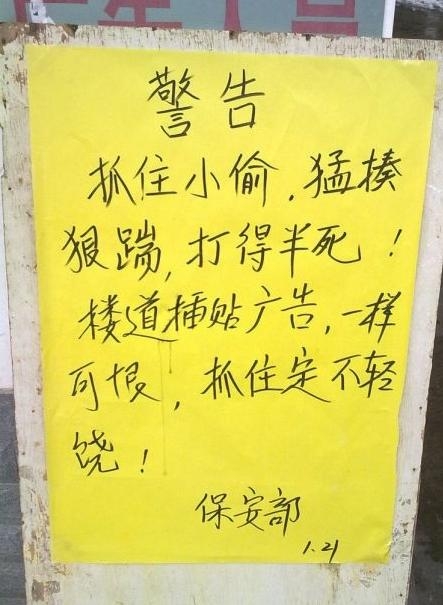 警告
抓住小偷，猛揍
狠踹，打得半死！
楼道插贴广告，一样
可恨，抓住定不轻
饶！
保安部
1.21